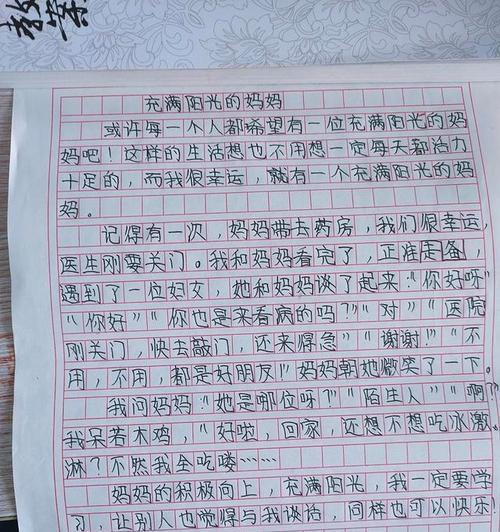 教案
充满阳光的妈妈
或许每一个人都希望有一位充满阳光的妈
妈吧！这样的生活想也不用想一定每天都活力
十足的，而我很幸运，就有一个充满阳光的妈
妈。
记得有一次，妈妈带去药房，我们很幸运，
医生刚要关门。我和妈妈看完了，正准走备，
遇到了一位妇女，她和妈妈谈了起来："你好呀"
"你好""你也是来看病的吗？""对""医院
刚关门，快去敲门，还来得急""谢谢！""不
用，不用，都是好朋友！"妈妈朝她微笑了一下。
我问妈妈："她是哪位呀？""陌生人""啊？"
我呆若木鸡，"好啦，回家，还想不想吃冰激
淋？不然我全吃喽……
妈妈的积极向上，充满阳光，我一定要学
习，让别人也觉得与我谈话，同样也可以快乐